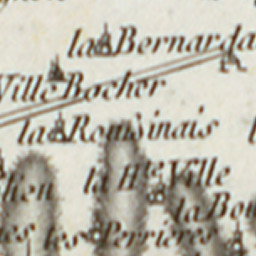 la Bernarda
Ville Bocher
la Romsinais
lien
la H.te Ville
la Bou
les Perrieres